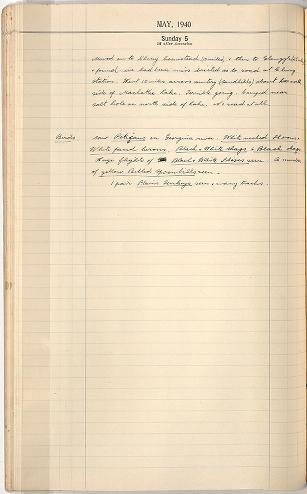 MAY, 1940
Sunday 5
moved on to Cluny homestead (10 miles), & then to
& found we had been miss directed as to road at Cluny
station. Went 10 miles across country (sandhills) about
side of Machattie Lake. Terrible going. Camped near
salt hole on north side of Lake. No road at all.
Birds saw Pelicans on Georgina river. White necked Herons
White faced herons. Black & White shags & Black shags
Huge flights of Black & White Ibises seen. A number
of yellow Billed Spoonbills seen.
1 pair Plains Turkeys seen, many